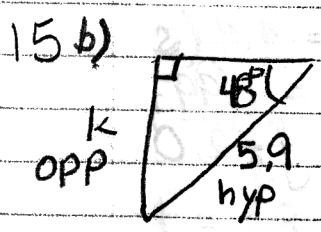 15 b)
48°
k
opp
5,9
hyp